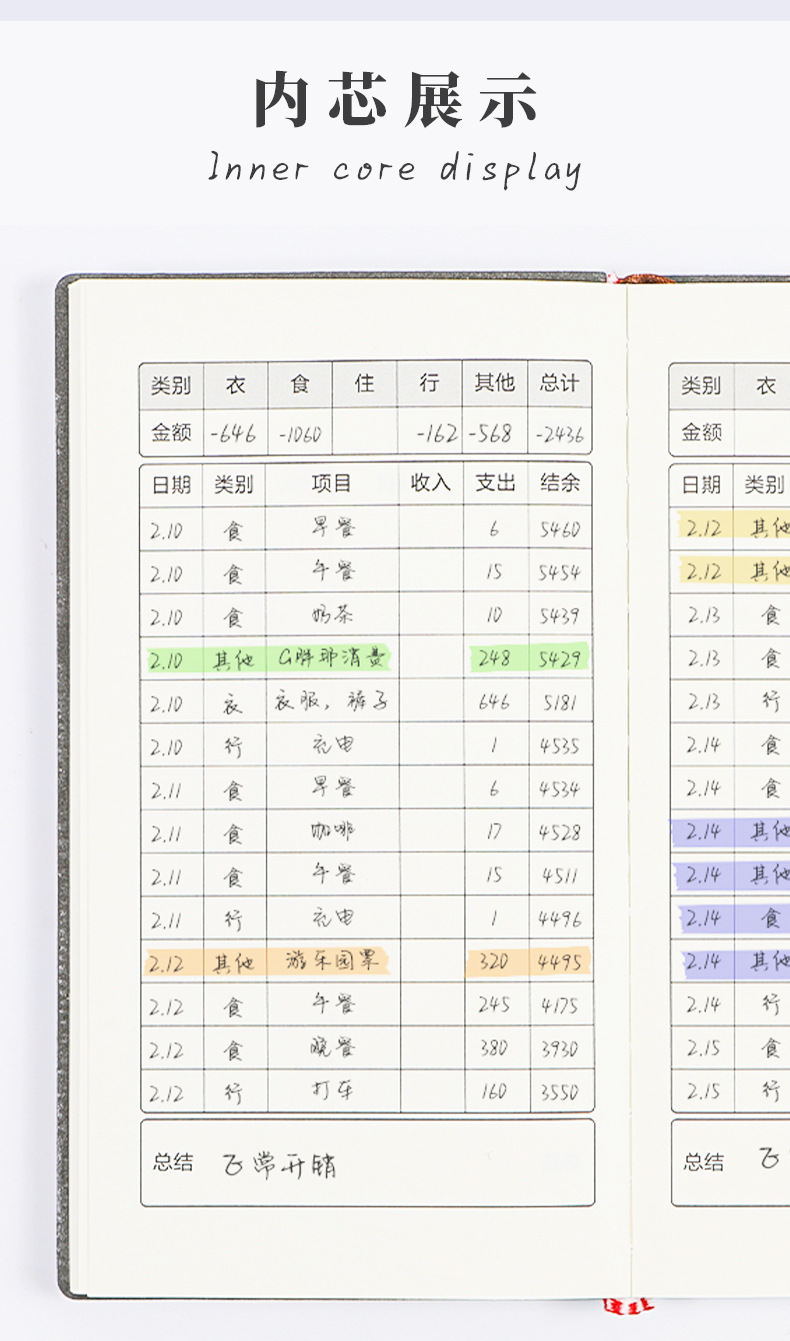 内芯展示
Inner core display
类别 衣 食 住 行 其他 总计
金额 -646 -1060 -162 -568 -2436
日期 类别 项目 收入 支出 结余
2.10 食 早餐 6 5460
2.10 食 午餐 15 5454
2.10 食 奶茶 10 5439
2.10 其他 G胖耶消费 248 5429
2.10 衣 衣服，裤子 646 5181
2.10 行 充电 1 4535
2.11 食 早餐 6 4534
2.11 食 咖啡 17 4528
2.11 食 午餐 15 4511
2.11 行 充电 1 4496
2.12 其他 游乐园票 320 4495
2.12 食 午餐 245 4175
2.12 食 晚餐 380 3930
2.12 行 打车 160 3550
总结 飞常开销
类别 衣
金额
日期 类别
2.12 其他
2.12 其他
2.13 食
2.13 食
2.13 行
2.14 食
2.14 食
2.14 其他
2.14 其他
2.14 食
2.14 其他
2.14 行
2.15 食
2.15 行
总结 飞